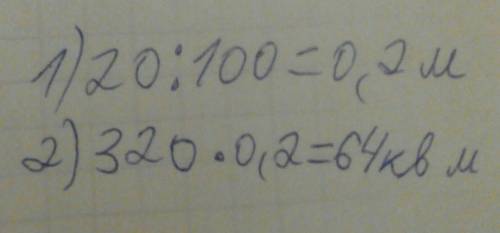 1) 20:100=0,2м
2) 320·0,2=64кв м